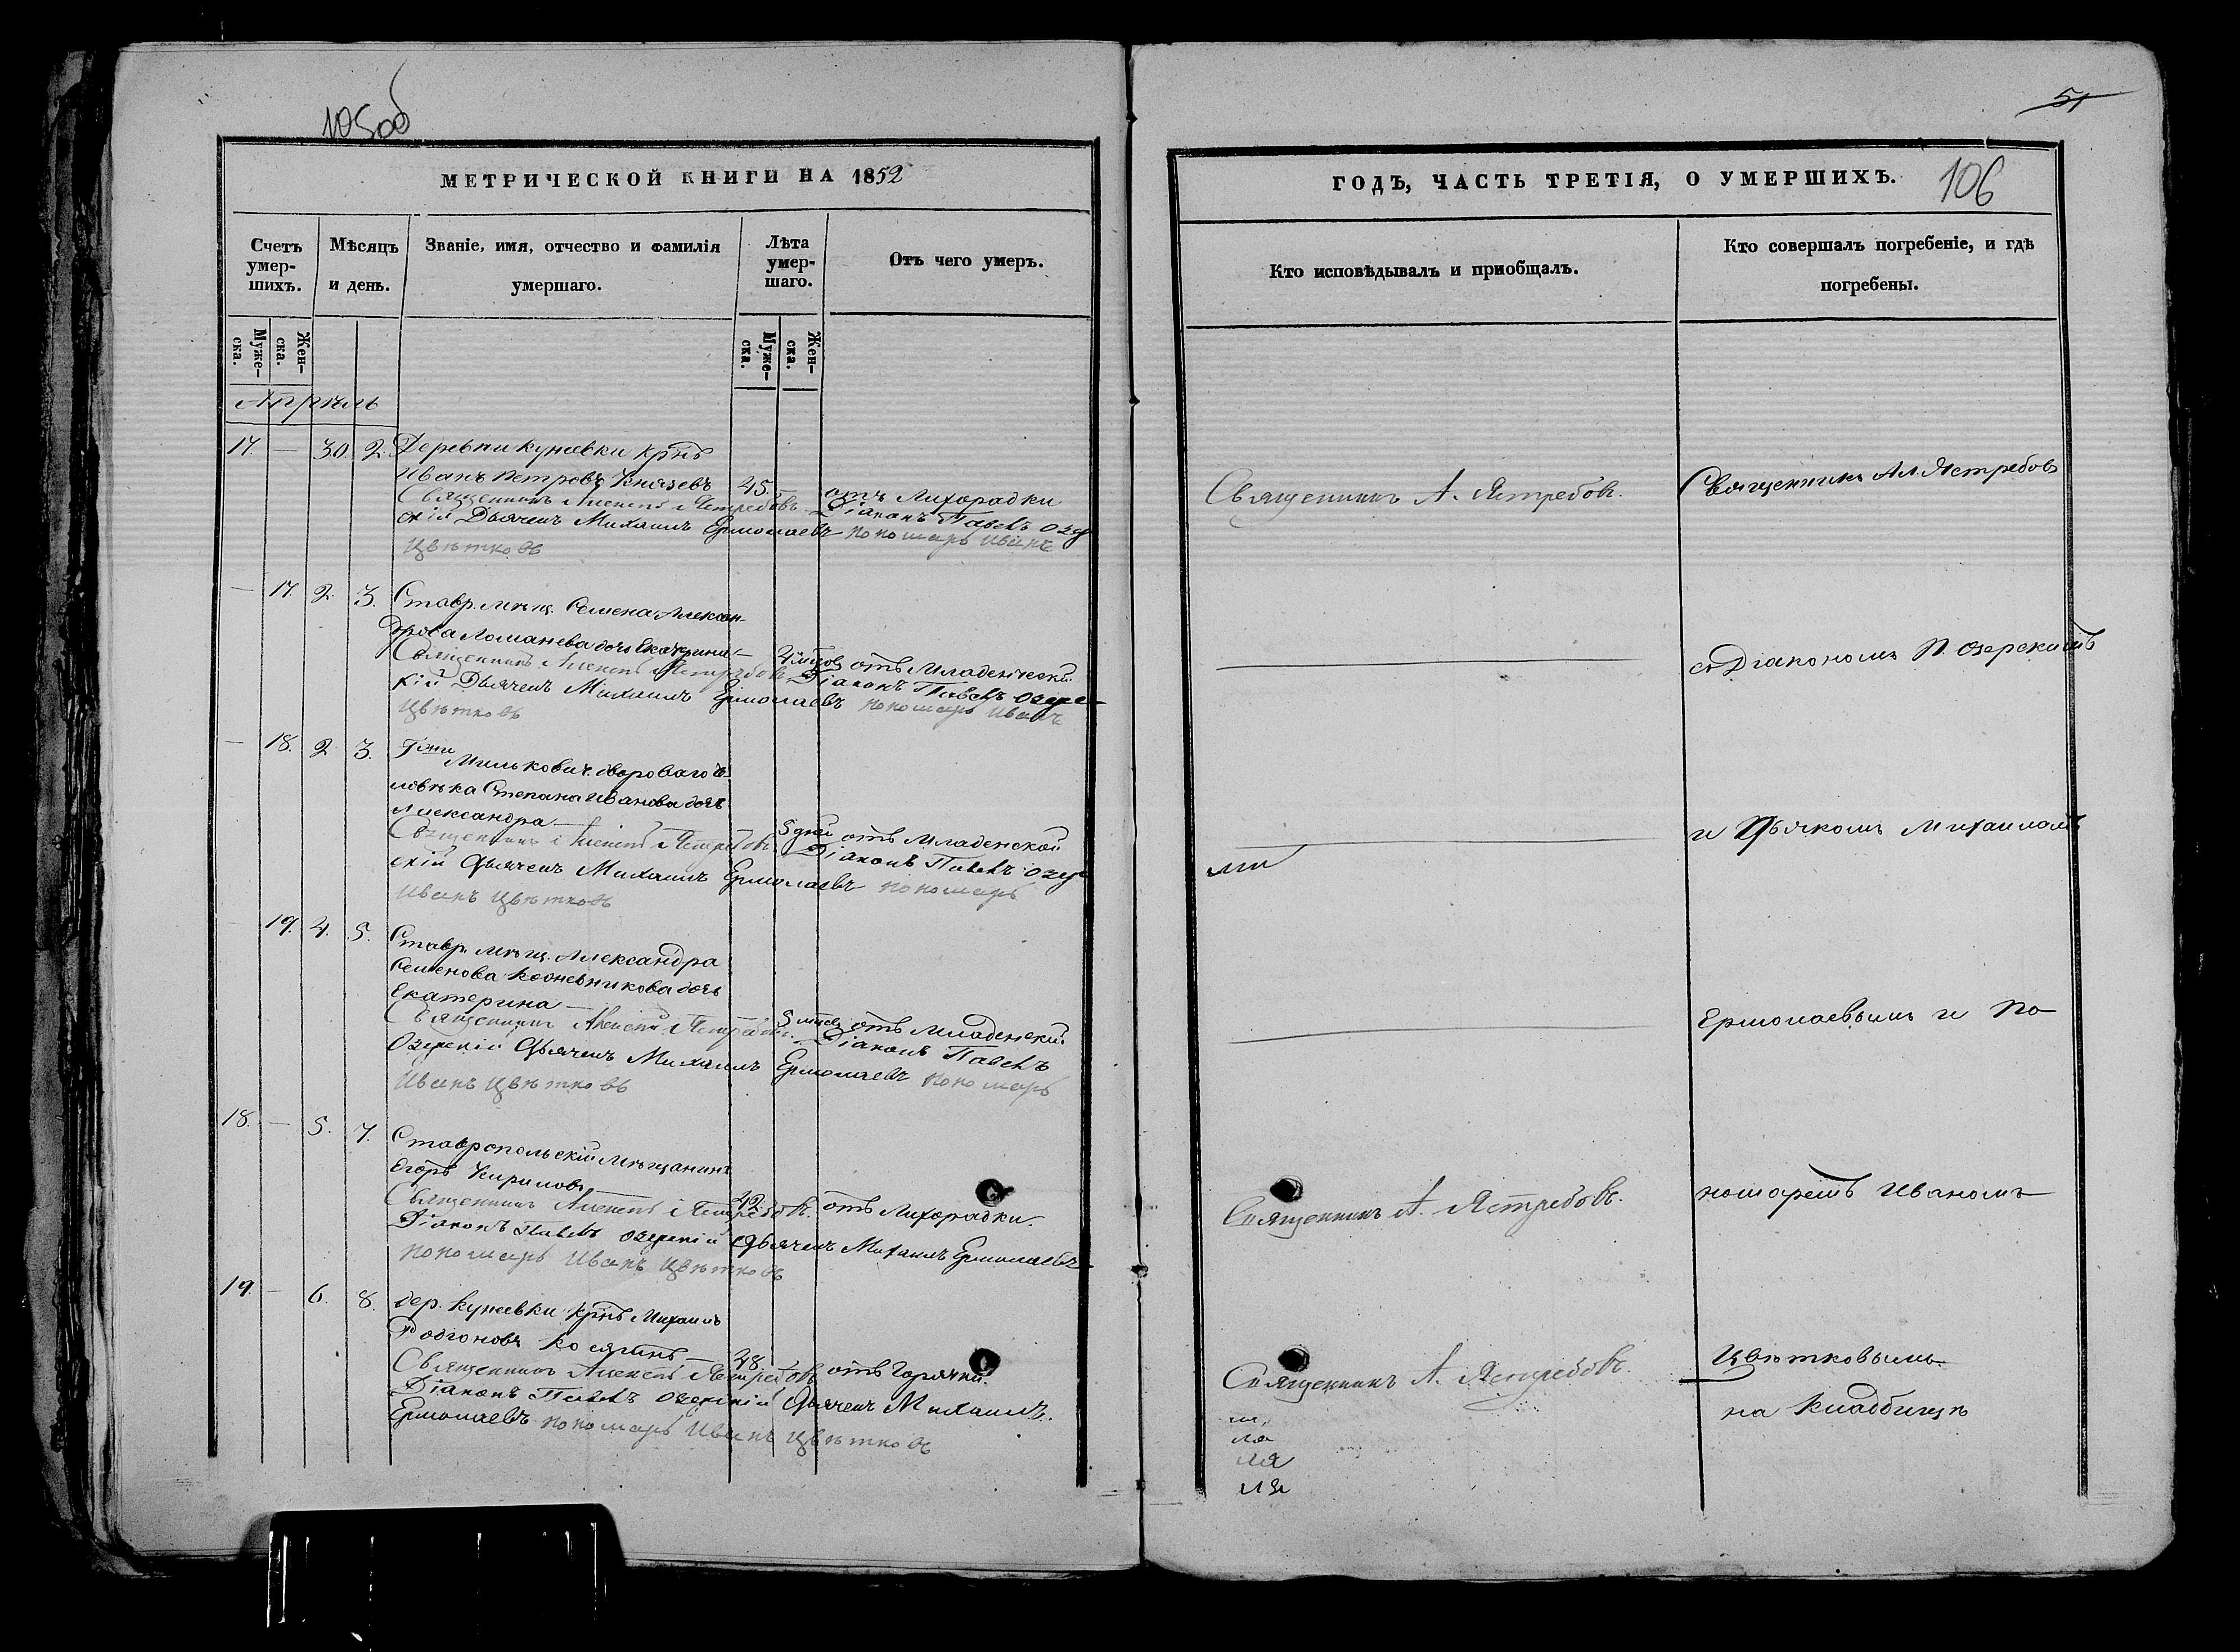 105об
МЕТРИЧЕСКОЙ КНИГИ НА 1852
Счетъ умер-шихъ.
Мѣсяцъ и день.
Званіе, имя, отчество и фамилія умершаго.
Лѣта умер-шаго.
Отъ чего умеръ.
Муже-ска.
Жен-ска.
Муже-ска.
Жен-ска.
Апрѣль
17. — 30. 2. Деревни Кунеевки крнъ
Иванъ Петровъ Князевъ 45. отъ Лихорадки
Священникъ Алексѣй Ястребовъ Діаконъ Павелъ Озер
скій Дьячекъ Михаилъ Ермолаевъ пономарь Иванъ
Цвѣтковъ
— 17. 2. 3. Ставр. мѣщ. Семена Алексан-
дрова Ломанева дочь Екатерина — 4 мцов отъ младенческой
Священникъ Алексѣй Ястребовъ Діаконъ Павелъ Озерс
кій Дьячекъ Михаилъ Ермолаевъ пономарь Иванъ
Цвѣтковъ
— 18. 2. 3. Гжи Милькович. двороваго че
ловѣка Степана Иванова дочь
Александра — 5 дней отъ Младенской
Священникъ Алексѣй Ястребовъ Діаконъ Павелъ Озер
скій Дьячекъ Михаилъ Ермолаевъ пономарь
Иванъ Цвѣтковъ
— 19. 4. 5. Ставр. мѣщ. Александра
Семенова Кожевникова дочь
Екатерина — 5 мцев отъ младенской
Священникъ Алексѣй Ястребовъ. Діаконъ Павелъ
Озерскій Дьячекъ Михаилъ Ермолаевъ пономарь
Иванъ Цвѣтковъ
18. — 5. 7. Ставропольскій мѣщанинъ
Егоръ Кириловъ 42. отъ Лихорадки.
Священникъ Алексѣй Ястребовъ.
Діаконъ Павелъ Озерскій Дьячекъ Михаилъ Ермолаевъ
пономарь Иванъ Цвѣтковъ
19. — 6. 8. дер. Кунеевки крнъ Михаилъ
Родіоновъ — 48. отъ Горячки.
Священникъ Алексѣй Ястребовъ
Діаконъ Павелъ Озерскій Дьячекъ Михаилъ
Ермолаевъ пономарь Иванъ Цвѣтковъ
51
ГОДЪ, ЧАСТЬ ТРЕТІЯ, О УМЕРШИХЪ. 106
Кто исповѣдывалъ и приобщалъ.
Кто совершалъ погребеніе, и гдѣ погребены.
Священникъ А. Ястребовъ. Священникъ Ал Ястребовъ
съ Діакономъ П. Озерскимъ
и Дьячкомъ Михаиломъ
ли
Ермолаевымъ и По
Священникъ А. Ястребовъ. номаремъ Иваномъ
Священникъ А. Ястребовъ. Цвѣтковымъ
на Кладбищѣ
ла
ля